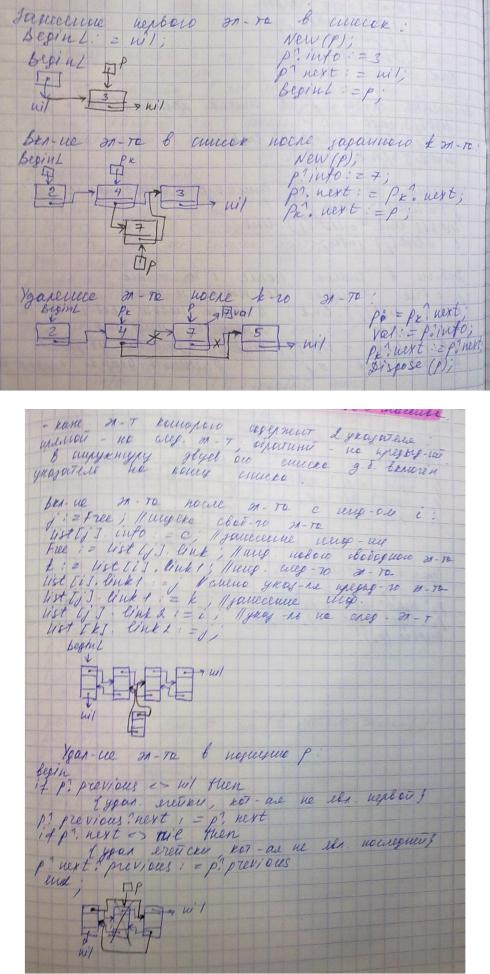 Занесение первого эл-та в список:
BeginL := nil;
New(p);
p^.info := 3
p^.next := nil;
BeginL := p;
BeginL
p
3
nil
nil
Вкл-ие эл-та в список после заданного k эл-та:
New(p);
p^.info := 7;
p^.next := pk^.next;
pk^.next := p;
BeginL
pk
2
4
3
nil
7
p
Удаление эл-та после k-го эл-та:
p := pk^.next;
val := p^.info;
pk^.next := p^.next
Dispose(p);
BeginL
pk
p
val
2
4
7
5
nil
- кажд эл-т которого содержит 2 указателя:
прямой - на след. эл-т, обратный - на предыд-ий
В структуру двусв ого списка д.б. включен
указатель на конец списка.
Вкл-ие эл-та после эл-та с инд-ом i:
j := Free; //индекс своб-го эл-та
list[j].info := c; //занесение инф-ии
Free := list[j].link; //инд нового свободного эл-та
k := list[i].link1; //инд. след-го эл-та
list[i].link1 := j //смена указ-ля предыд-го эл-та
list[j].link1 := k; //занесение инф.
list[j].link2 := i; //указ-ль на след. эл-т
list[k].link2 := j;
BeginL
nil
nil
Удал-ие эл-та в позицию p
begin
if p^.previous <> nil then
{удал. ячейки, кот-ая не явл. первой}
p^.previous^.next := p^.next
if p^.next <> nil then
{удал ячейки кот-ая не явл последней}
p^.next^.previous := p^.previous
end;
p
nil
nil